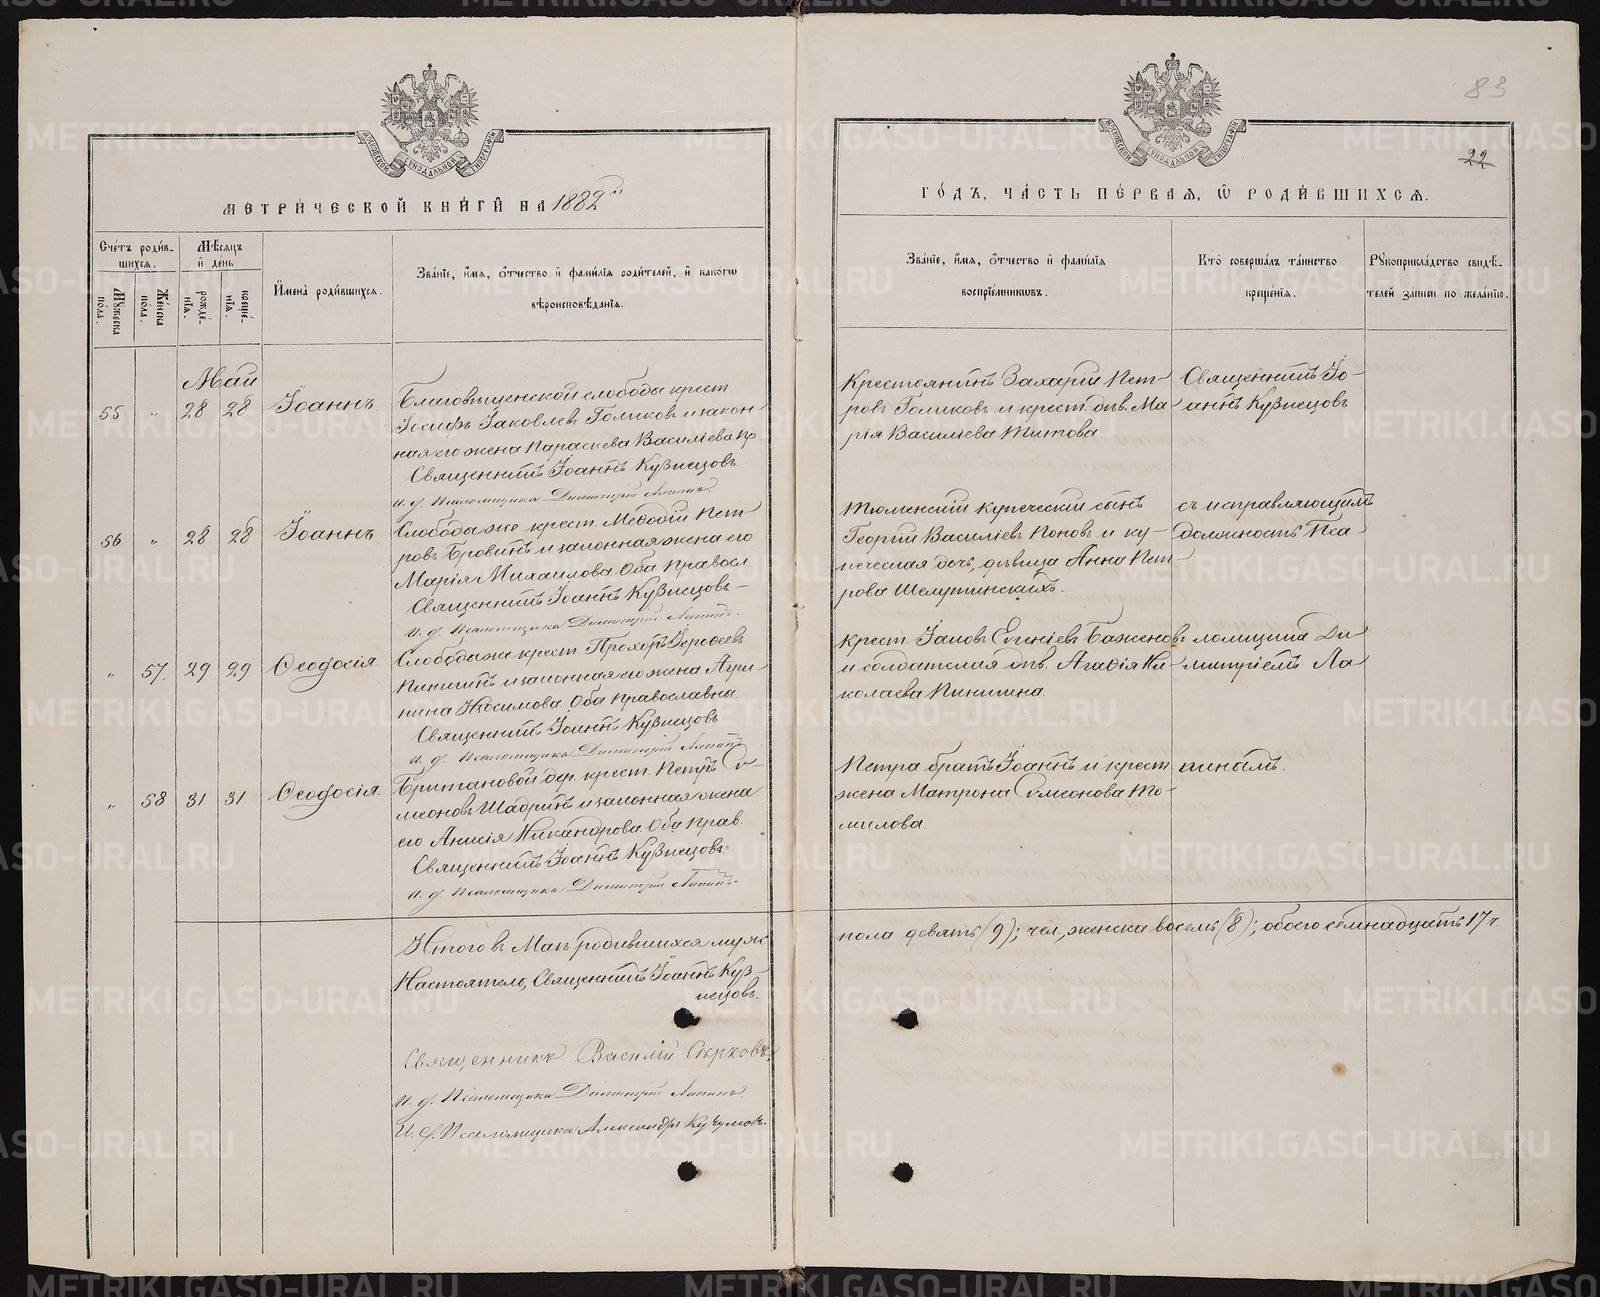 83
22
МЕТРИЧЕСКОЙ КНИГИ НА 1882й
ГОДЪ, ЧАСТЬ ПЕРВАЯ, Ѡ РОДИВШИХСЯ.
Счетъ родившихся.
Мужеска пола.
Женска пола.
Мѣсяцъ и день
рожденія.
крещенія.
Имена родившихся.
Званіе, имя, отчество и фамилія родителей, и какогѡ вѣроисповѣданія.
Званіе, имя, отчество и фамилія воспріемниковъ.
Кто совершалъ таинство крещенія.
Рукоприкладство свидѣтелей записи по желанію.
Май
55 „ 28 28 Іоаннъ
Благовѣщенской слободы крест.
Іосифъ Іаковлевъ Голиковъ и закон-
ная его жена Параскева Василіева пр.
Священникъ Іоаннъ Кузнецовъ
и. д. Псаломщика Димитрій Лапинъ.
Крестьянинъ Захарій Пет-
ровъ Голиковъ и крест. дѣв. Ма-
рія Василіева Титова.
Священникъ Іо-
аннъ Кузнецовъ
56 „ 28 28 Іоаннъ
Слободы же крест. Меѳодій Пет-
ровъ и законная жена его
Марія Михаилова Оба правосл
Священникъ Іоаннъ Кузнецовъ
и. д. Псаломщика Димитрій Лапинъ.
Тюменскій купеческій сынъ
Георгій Василіевъ Поповъ и ку-
печеская дочь, дѣвица Анна Пет-
рова
съ исправляющимъ
должность Пса-
„ 57. 29 29 Ѳеодосія
Слободы же крест. Прохоръ
Пинигинъ и законная его жена Агри-
пина Оба православны
Священникъ Іоаннъ Кузнецовъ
и. д. Псаломщика Димитрій Лапинъ
Крест. Іаковъ Евгеніевъ Баженовъ
и солдатская дѣв. Агафія Ни-
колаева Пинигина.
ломщика Ди-
митріемъ Ла-
„ 58 31 31 Ѳеодосія.
дер. крест. Петръ Си-
меоновъ Шадринъ и законная жена
его Анисія Никандрова Оба прав.
Священникъ Іоаннъ Кузнецовъ
и. д. Псаломщика Димитрій Лапинъ.
Петра братъ Іоаннъ и крест.
жена Матрона Симеонова То-
милова.
пинымъ.
Итого въ Маѣ родившихся муж.
пола девять (9); чел, женска восемь (8); обоего семнадцать 17 ч.
Настоятель, Священникъ Іоаннъ Куз-
нецовъ.
Священникъ Василій
и. д. Псаломщика Димитрій Лапинъ.
И. д. Псаломщика Александръ Кучумовъ.
METRIKI.GASO-URAL.RU